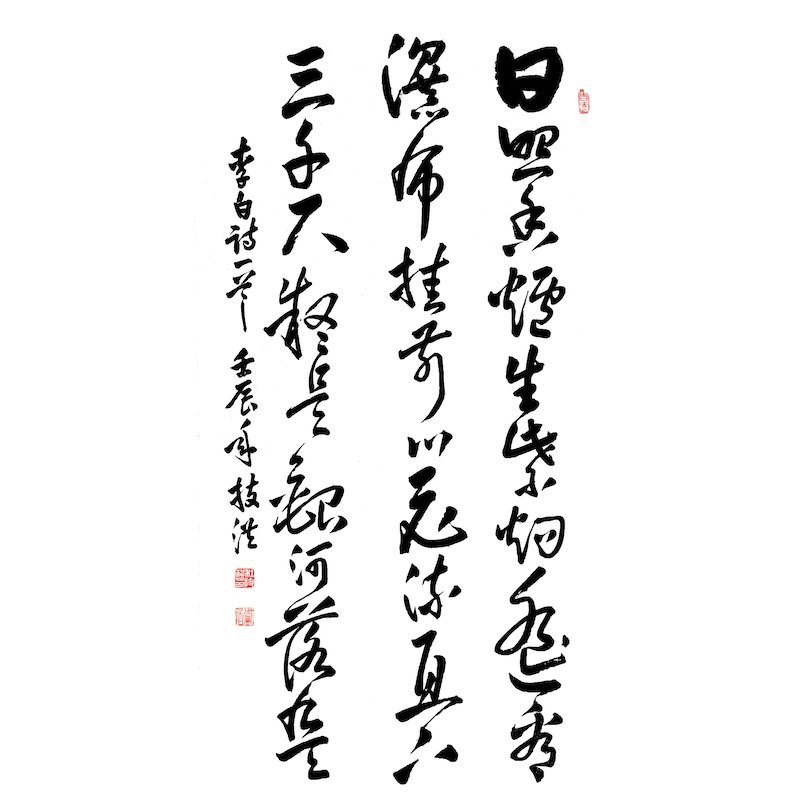 日照香爐生紫烟遥看
瀑布挂前川飛流直下
三千尺疑是銀河落九天
李白詩一首 壬辰年 技洪